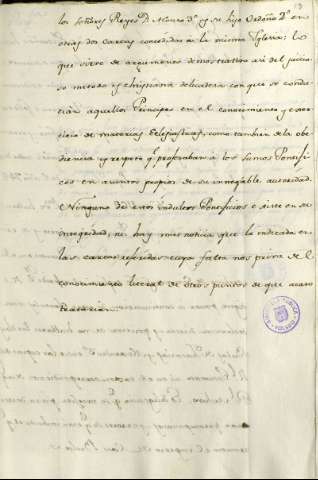 los Señores Reyes D. Alonso 3º y su hijo Ordoño 2º en
otras dos cartas concedidas a la misma Yglesia: lo
que sirve de argumento demostrativo asi del juicio-
so metodo y christiana delicadeza con que se condu-
cian aquellos Principes en el conocimiento y exer-
cicio de materias Eclesiasticas, como tambien de la obe-
diencia y respeto q. profesaban a los Sumos Pontifi-
ces en asuntos propios de su innegable autoridad.
Ninguno de estos indultos Pontificios existe en su
integridad, ni hay mas noticia que la indicada en
las cartas referidas cuya falta nos priva del
conocimiento literal de otros puntos de que acaso
tratarian.